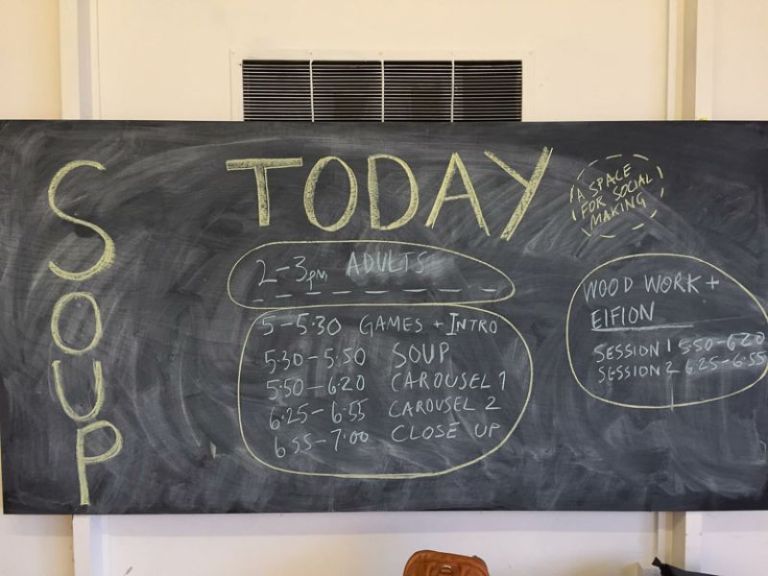 SOUP
TODAY
A SPACE
FOR SOCIAL
MAKING
2-3pm ADULTS
5-5.30 GAMES + INTRO
5.30-5.50 SOUP
5.50-6.20 CAROUSEL 1
6.25-6.55 CAROUSEL 2
6.55-7.00 CLOSE UP
WOOD WORK +
EIFION
SESSION 1 5.50-6.20
SESSION 2 6.25-6.55